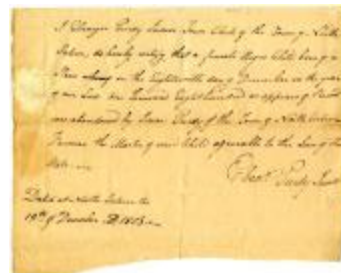 I Ebenezer Purdy Junior Town Clerk of the Town of North
Salem, do hereby certify that a female Negro Child being a
Slave on the Eighteenth day of December in the year
of our Lord one Thousand Eight Hundred
was abandoned by Isaac of the Town of North Salem
Farmer the Master of said Child agreeable to the Law of the
State
Eben. Purdy Junr
Dated at North Salem the
19th of December AD 1803